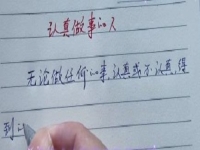 认真做事的人
无论做任何事,认真或不认真,得
到的